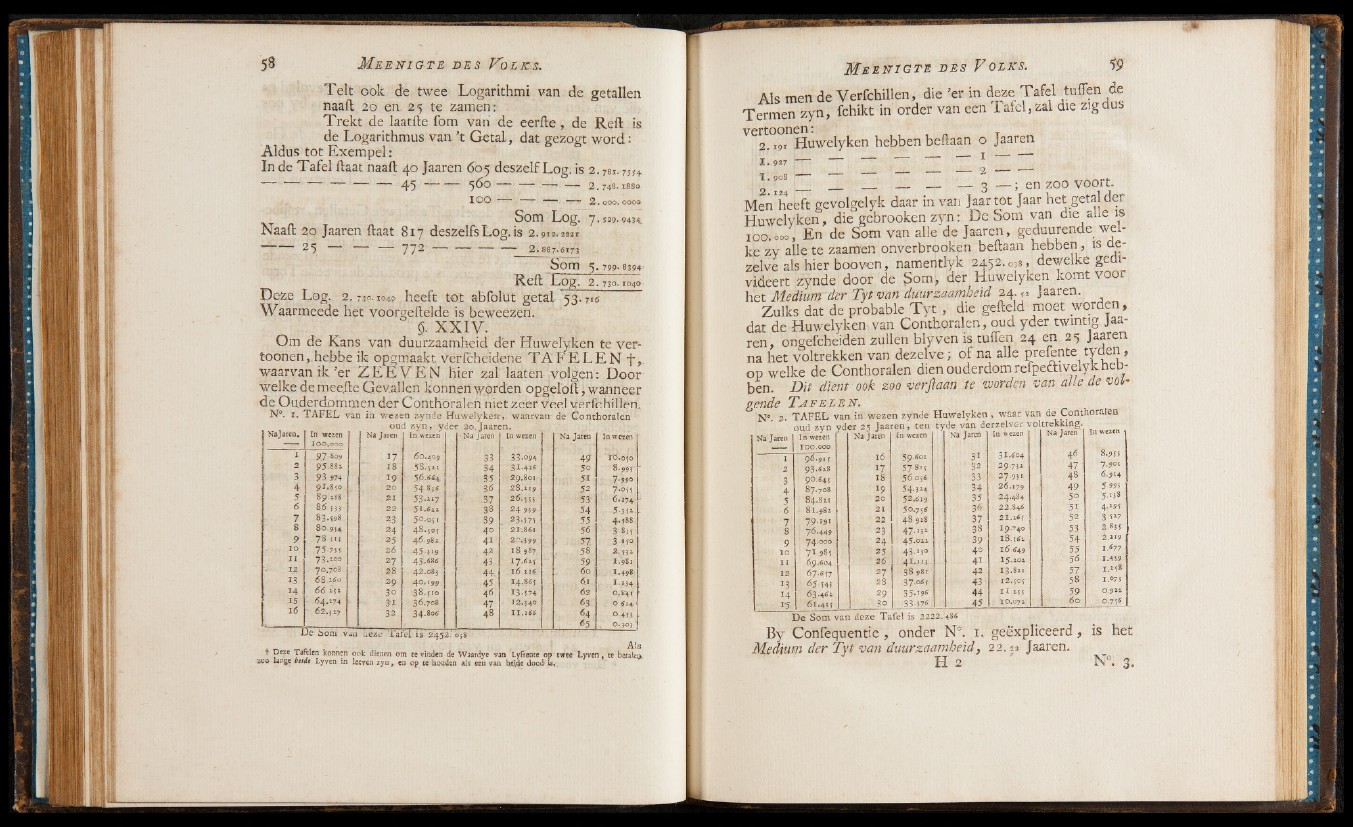 58 MEENIGTE DES VOLKS.
Telt ook de twee Logarithmi van de getallen
naaſt 20 en 25 te zamen:
Trekt de laatſte ſom van de eerſte, de Reſt is
de Logarithmus van 't Getal, dat gezogt word:
Aldus tot Exempel:
In de Tafel ſtaat naaſt 40 Jaaren 605 deszelf Log. is 2.781.7554
— — — — — — 45 — — 560 — — — — 2.748.1880
100 — — — — 2.000.0000
Som Log. 7.529.9434
Naaſt 20 Jaaren ſtaat 817 deszelfs Log. is 2.912.2221
— — 25 — — — 772 — — — — 2.887.6173
Som 5.799.8394
Reſt Log. 2.730.1040
Deze Log. 2.730.1040 heeft tot abſolut getal 53.716
Waarmeede het voorgeſtelde is beweezen.
§. XXIV.
Om de Kans van duurzaamheid der Huwelyken te ver-
toonen, hebbe ik opgmaakt verſcheidene TAFELEN †,
waarvan ik 'er ZEEVEN hier zal laaten volgen: Door
welke de meeſte Gevallen konnen worden opgeloſt, wanneer
de Ouderdommen der Conthoralen niet zeer veel verſchillen.
N°. 1. TAFEL van in wezen zynde Huwelyken, waarvan de Conthoralen
oud zyn, yder 20. Jaaren.
Na Jaren. In wezen Na Jaren In wezen Na Jaren In wezen Na Jaren In wezen
— 100.000
1 97.809 17 60.409 33 33.094 49 10.050
2 95.882 18 58.521 34 31.426 50 8.995
3 93.974 19 56.664 35 29.801 51 7.990
4 91.850 20 54.856 36 28.219 52 7.055
5 89.288 21 53.217 37 26.555 53 6.174
6 86.533 22 51.622 38 24.959 54 5.352
7 83.598 23 50.051 39 23.373 55 4.588
8 80.954 24 48.505 40 21.862 56 3.855
9 78.311 25 46.982 41 20.399 57 3.150
10 75.755 26 45.519 42 18.987 58 2.532
11 73.200 27 43.686 43 17.625 59 1.982
12 70.708 28 42.083 44 16.216 60 1.498
13 68.260 29 40.199 45 14.865 61 1.134
14 66.252 30 38.510 46 13.574 62 0.841
15 64.274 31 36.708 47 12.340 63 0.614
16 62.327 32 34.806 48 11.166 64 0.433
65 0.303
De Som van deze Tafel is 2452.038
Als
† Deze Tafelen konnen ook dienen om te vinden de Waardye van Lyfrente op twee Lyven, te betalen,
zoo lange beide Lyven in leeven zyn, en op te houden als een van beide dood is.
MEENIGTE DES VOLKS. 59
Als men de Verſchillen, die 'er in deze Tafel tuſſen de
Termen zyn, ſchikt in order van een Tafel, zal die zig dus
vertoonen:
2.191 Huwelyken hebben beſtaan 0 Jaaren
1.927 — — — — — — 1 — —
1.908 — — — — — — 2 — —
2.124 — — — — — — 3 —; en zoo voort.
Men heeft gevolgelyk daar in van Jaar tot Jaar het getal der
Huwelyken, die gebrooken zyn: De Som van die alle is
100.000, En de Som van alle de Jaaren, geduurende wel-
ke zy alle te zaamen onverbrooken beſtaan hebben, is de-
zelve als hier booven, namentlyk 2452.038, dewelke gedi-
videert zynde door de Som, der Huwelyken komt voor
het Medium der Tyt van duurzaamheid 24.52 Jaaren.
Zulks dat de probable Tyt, die geſteld moet worden,
dat de Huwelyken van Conthoralen, oud yder twintig Jaa-
ren, ongeſcheiden zullen blyven is tuſſen 24 en 25 Jaaren
na het voltrekken van dezelve; of na alle preſente tyden,
op welke de Conthoralen dien ouderdom reſpectivelyk heb-
ben. Dit dient ook zoo verſtaan te worden van alle de vol-
gende TAFELEN.
N°. 2. TAFEL van in wezen zynde Huwelyken, waar van de Conthoralen
oud zyn yder 25 Jaaren, ten tyde van derzelver voltrekking.
Na Jaren In wezen Na Jaren In wezen Na Jaren In wezen Na Jaren In wezen
— 100.000
1 96.915 16 59.601 31 31.604 46 8.955
2 93.628 17 57.825 32 29.732 47 7.901
3 90.645 18 56.056 33 27.931 48 6.914
4 87.708 19 54.324 34 26.179 49 5.995
5 84.821 20 52.619 35 24.484 50 5.138
6 81.982 21 50.756 36 22.846 51 4.295
7 79.191 22 48.928 37 21.265 52 3.527
8 76.449 23 47.132 38 19.740 53 2.835
9 74.000 24 45.022 39 18.162 54 2.219
10 71.985 25 43.130 40 16.649 55 1.677
11 69.604 26 41.111 41 15.202 56 1.459
12 67.657 27 38.981 42 13.821 57 1.258
13 65.545 28 37.065 43 12.505 58 1.075
14 63.462 29 35.196 44 11.255 59 0.922
15 61.415 30 33.376 45 10.072 60 0.756
De Som van deze Tafel is 2222.486
By Conſequentie, onder N°. 1. geëxpliceerd, is het
Medium der Tyt van duurzaamheid, 22.22 Jaaren.
H 2 N°. 3.